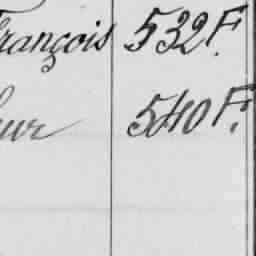 François 532 F.
540 F.